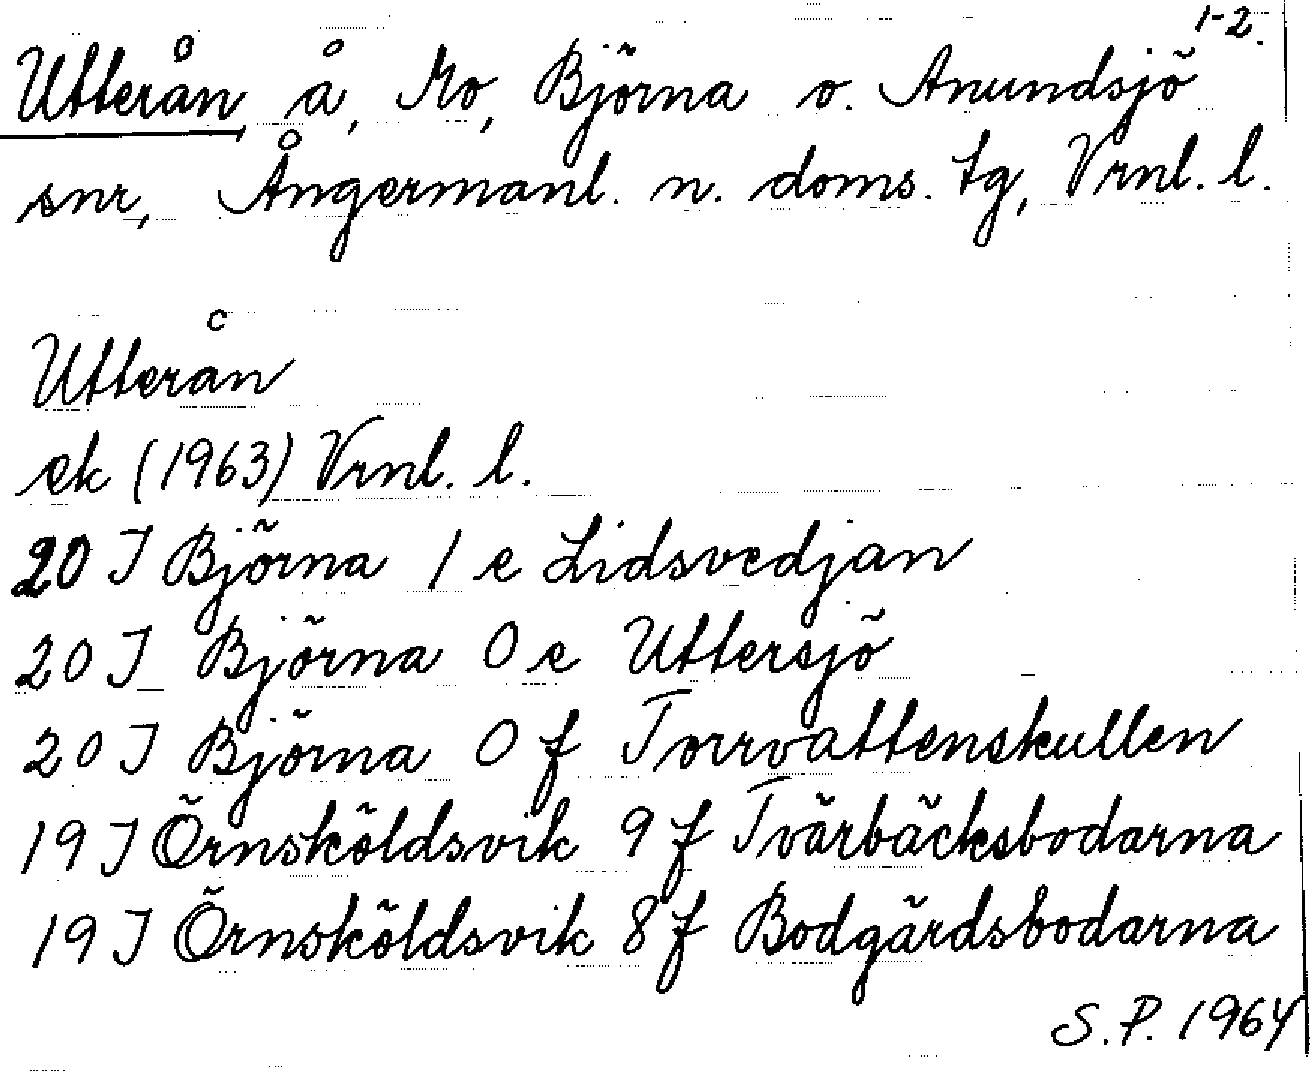 1-2.
Utterån, å, Mo, Björna o. Anundsjö
snr, Ångermanl. n. doms. tg, Vrnl. l.
Utterån
ek (1963) Vrnl. l.
20 I Björna 1 e Lidsvedjan
20 I Björna 0 e Uttersjö
20 I Björna 0 f Torrvattenskullen
19 I Örnsköldsvik 9 f Tvärbäcksbodarna
19 I Örnsköldsvik 8 f Bodgärdsbodarna
S. P. 1964